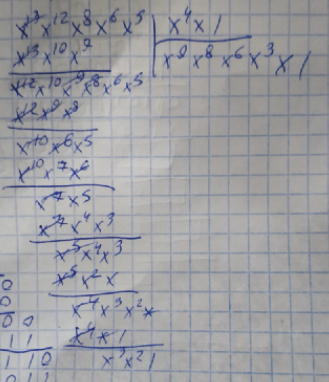 x¹³ x¹² x⁸ x⁶ x⁵ | x⁴ x 1
x¹³ x¹⁰ x⁹ | x⁹ x⁸ x⁶ x³ x 1
x¹² x¹⁰ x⁹ x⁸ x⁶ x⁵
x¹² x⁹ x⁸
x¹⁰ x⁶ x⁵
x¹⁰ x⁷ x⁶
x⁷ x⁵
x⁷ x⁴ x³
x⁵ x⁴ x³
x⁵ x² x
x⁴ x³ x² x
x⁴ x 1
x³ x² 1
0
0
0 0
1 1
1 1 0